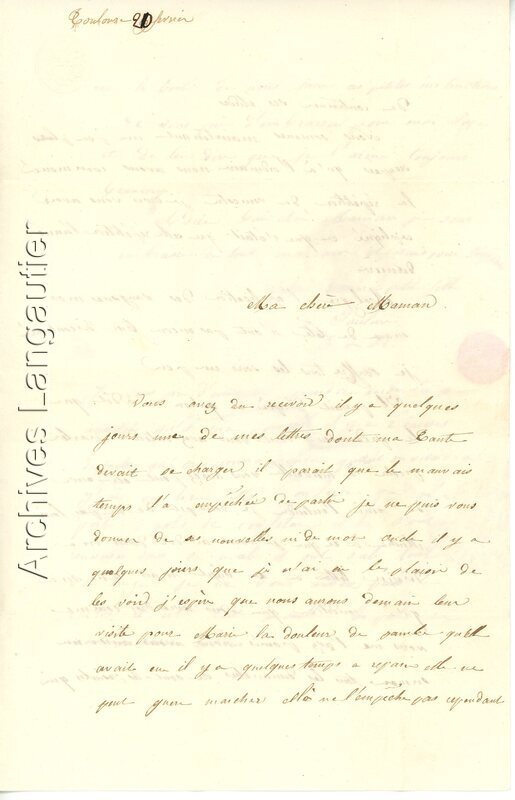 Toulouse 20 février
Ma chère Maman
Vous avez du recevoir il y a quelques
jours une de mes lettres dont ma Tante
devait se charger il parait que le mauvais
temps l'a empéchée de partir je ne puis vous
donner de ses nouvelles ni de mon oncle il y a
quelques jours que je n'ai eu le plaisir de
les voir j'espère que nous aurons demain leur
visite pour Marie la douleur de jambe qu'elle
avait eu il y a quelques temps a repari elle ne
peut guere marcher celà ne l'empêche pas cependant
Archives Langautier